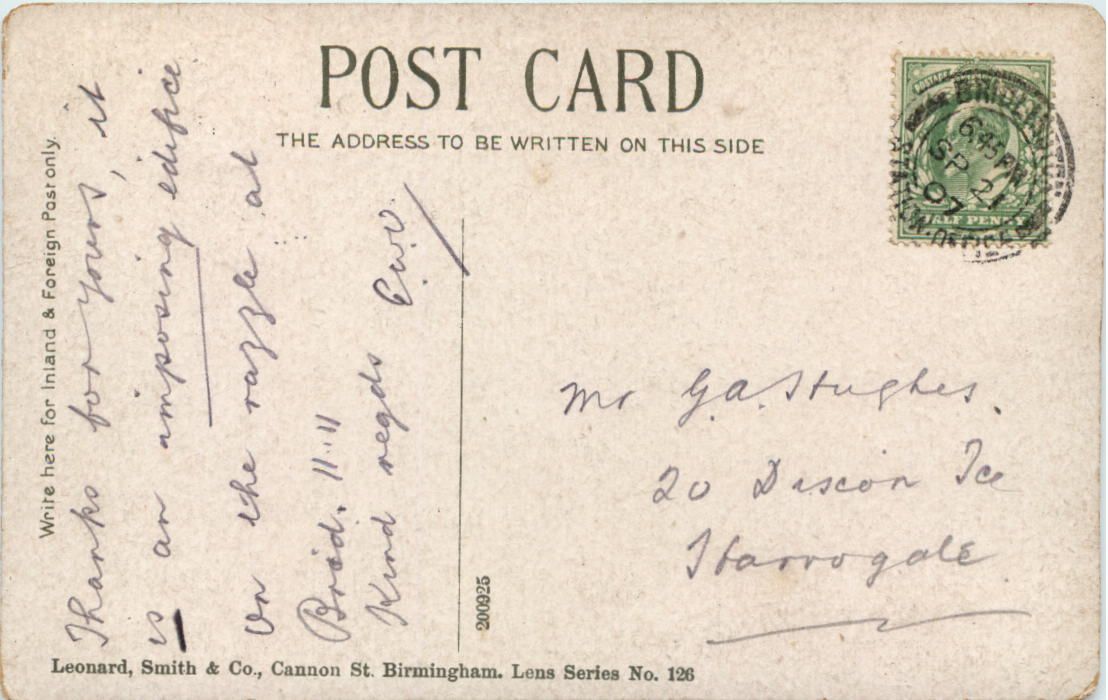 POST CARD
THE ADDRESS TO BE WRITTEN ON THIS SIDE
Write here for Inland & Foreign Post only.
Thanks for yours, it
is an imposing edifice
On the razzle at
Brid. !!..!!
Kind regds
POSTAGE
HALF PENNY
BRIDLINGTON
6.45 PM
SP 21
07
STATION OFFICE
Mr G.A. Hughes.
20 Tce
Harrogate
200925
Leonard, Smith & Co., Cannon St. Birmingham. Lens Series No. 126